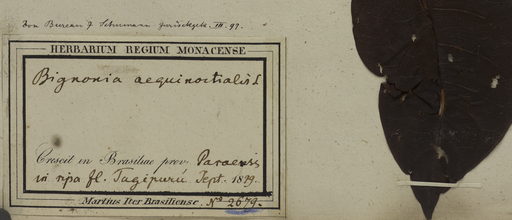 Von Bureau & Schumann zurückgek. III. 97.
HERBARIUM REGIUM MONACENSE
Bignonia aequinoctialis L
Crescit in Brasiliae prov. Paraensis
in ripa fl. Tagipurú. Sept. 1819.
Martius Iter Brasiliense, No 2679.